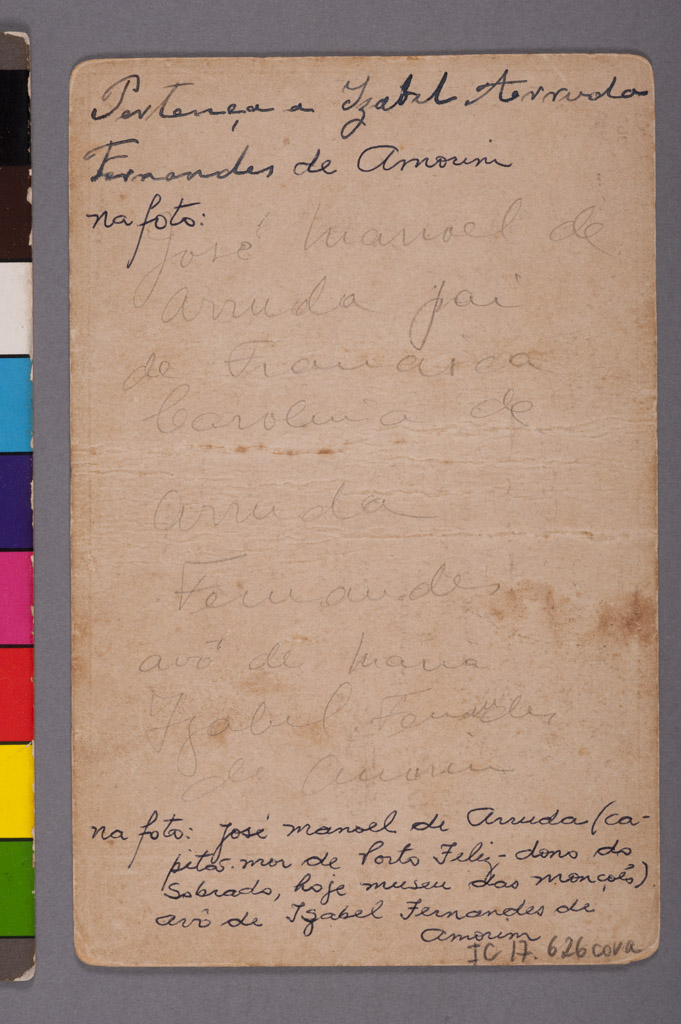 Pertença a Izabel Arruda
Fernandes de Amorim
na foto:
José Manoel de
Arruda pai
de Francisca
Carolina de
Arruda
Fernandes
avô de Maria
Izabel Fernandes
de Amorim
na foto: José Manoel de Arruda (ca-
pitão-mor de Porto Feliz - dono do
Sobrado, hoje museu das monções)
avô de Izabel Fernandes de
Amorim
IC 17.626